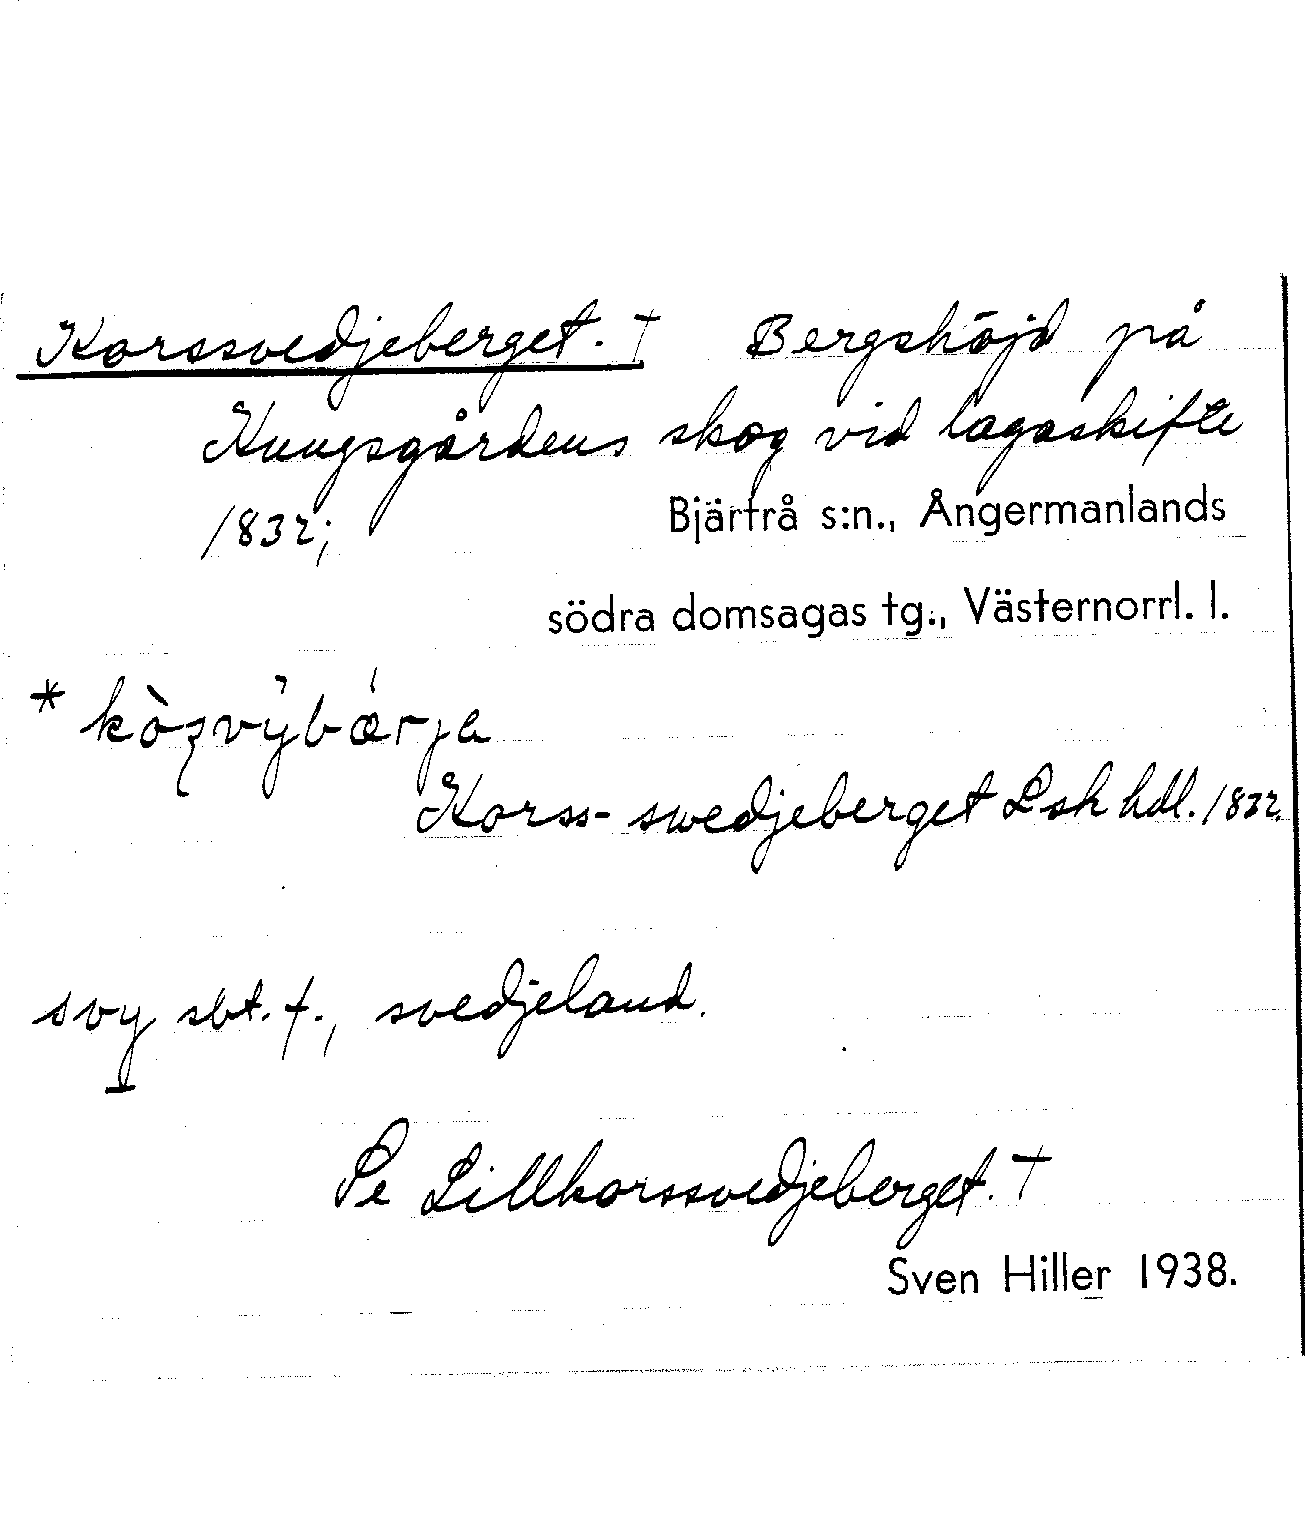 Korssvedjeberget. † Bergshöjd på
Kungsgårdens skog vid lagaskifte
1832;
Bjärtrå s:n., Ångermanlands
södra domsagas tg., Västernorrl. l.
*
Korss-swedjeberget Lsk hdl. 1832.
svy sbt. f., svedjeland.
Se Lillkorssvedjeberget. †
Sven Hiller 1938.